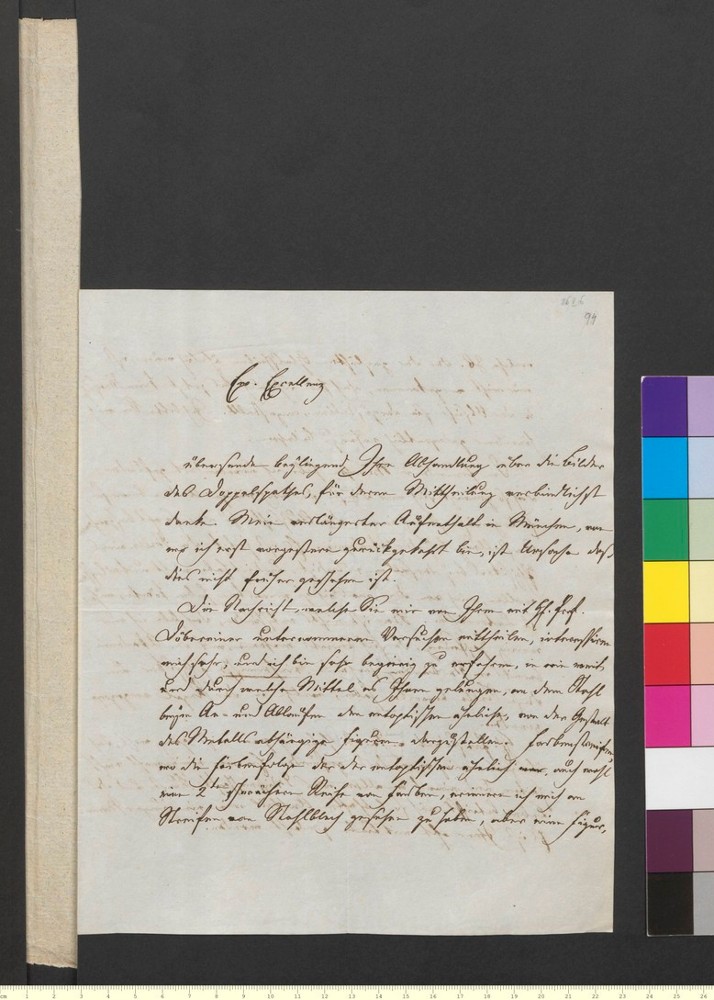 99
Ew. Excellenz
übersende beyliegend Ihre Abhandlung über die Bilder
des Doppelspathes, für deren Mittheilung verbindlichst
danke. Mein verlängerter Aufenthalt in München, von
wo ich erst vorgestern zurückgekehrt bin, ist Ursache daß
dies nicht früher geschehen ist.
Die Nachricht, welche Sie mir von Ihren mit H. Prof.
Döbereiner unternommenen Versuchen mittheilen, interessiren
mich sehr, und ich bin sehr begierig zu erfahren, in wie weit
und durch welche Mittel es Ihnen gelungen, an dem Stahl
beym An- und Ablaufen den entoptischen ähnliche, von der Gestalt
des Metalls abhängige Figuren darzustellen. Farbenstreifen
wo die Farbenfolge der der entoptischen ähnlich war, auch wohl
eine 2te schwächere Reihe von Farben, erinnere ich mich an
Streifen von Stahlblech gesehen zu haben, aber eine Figur,